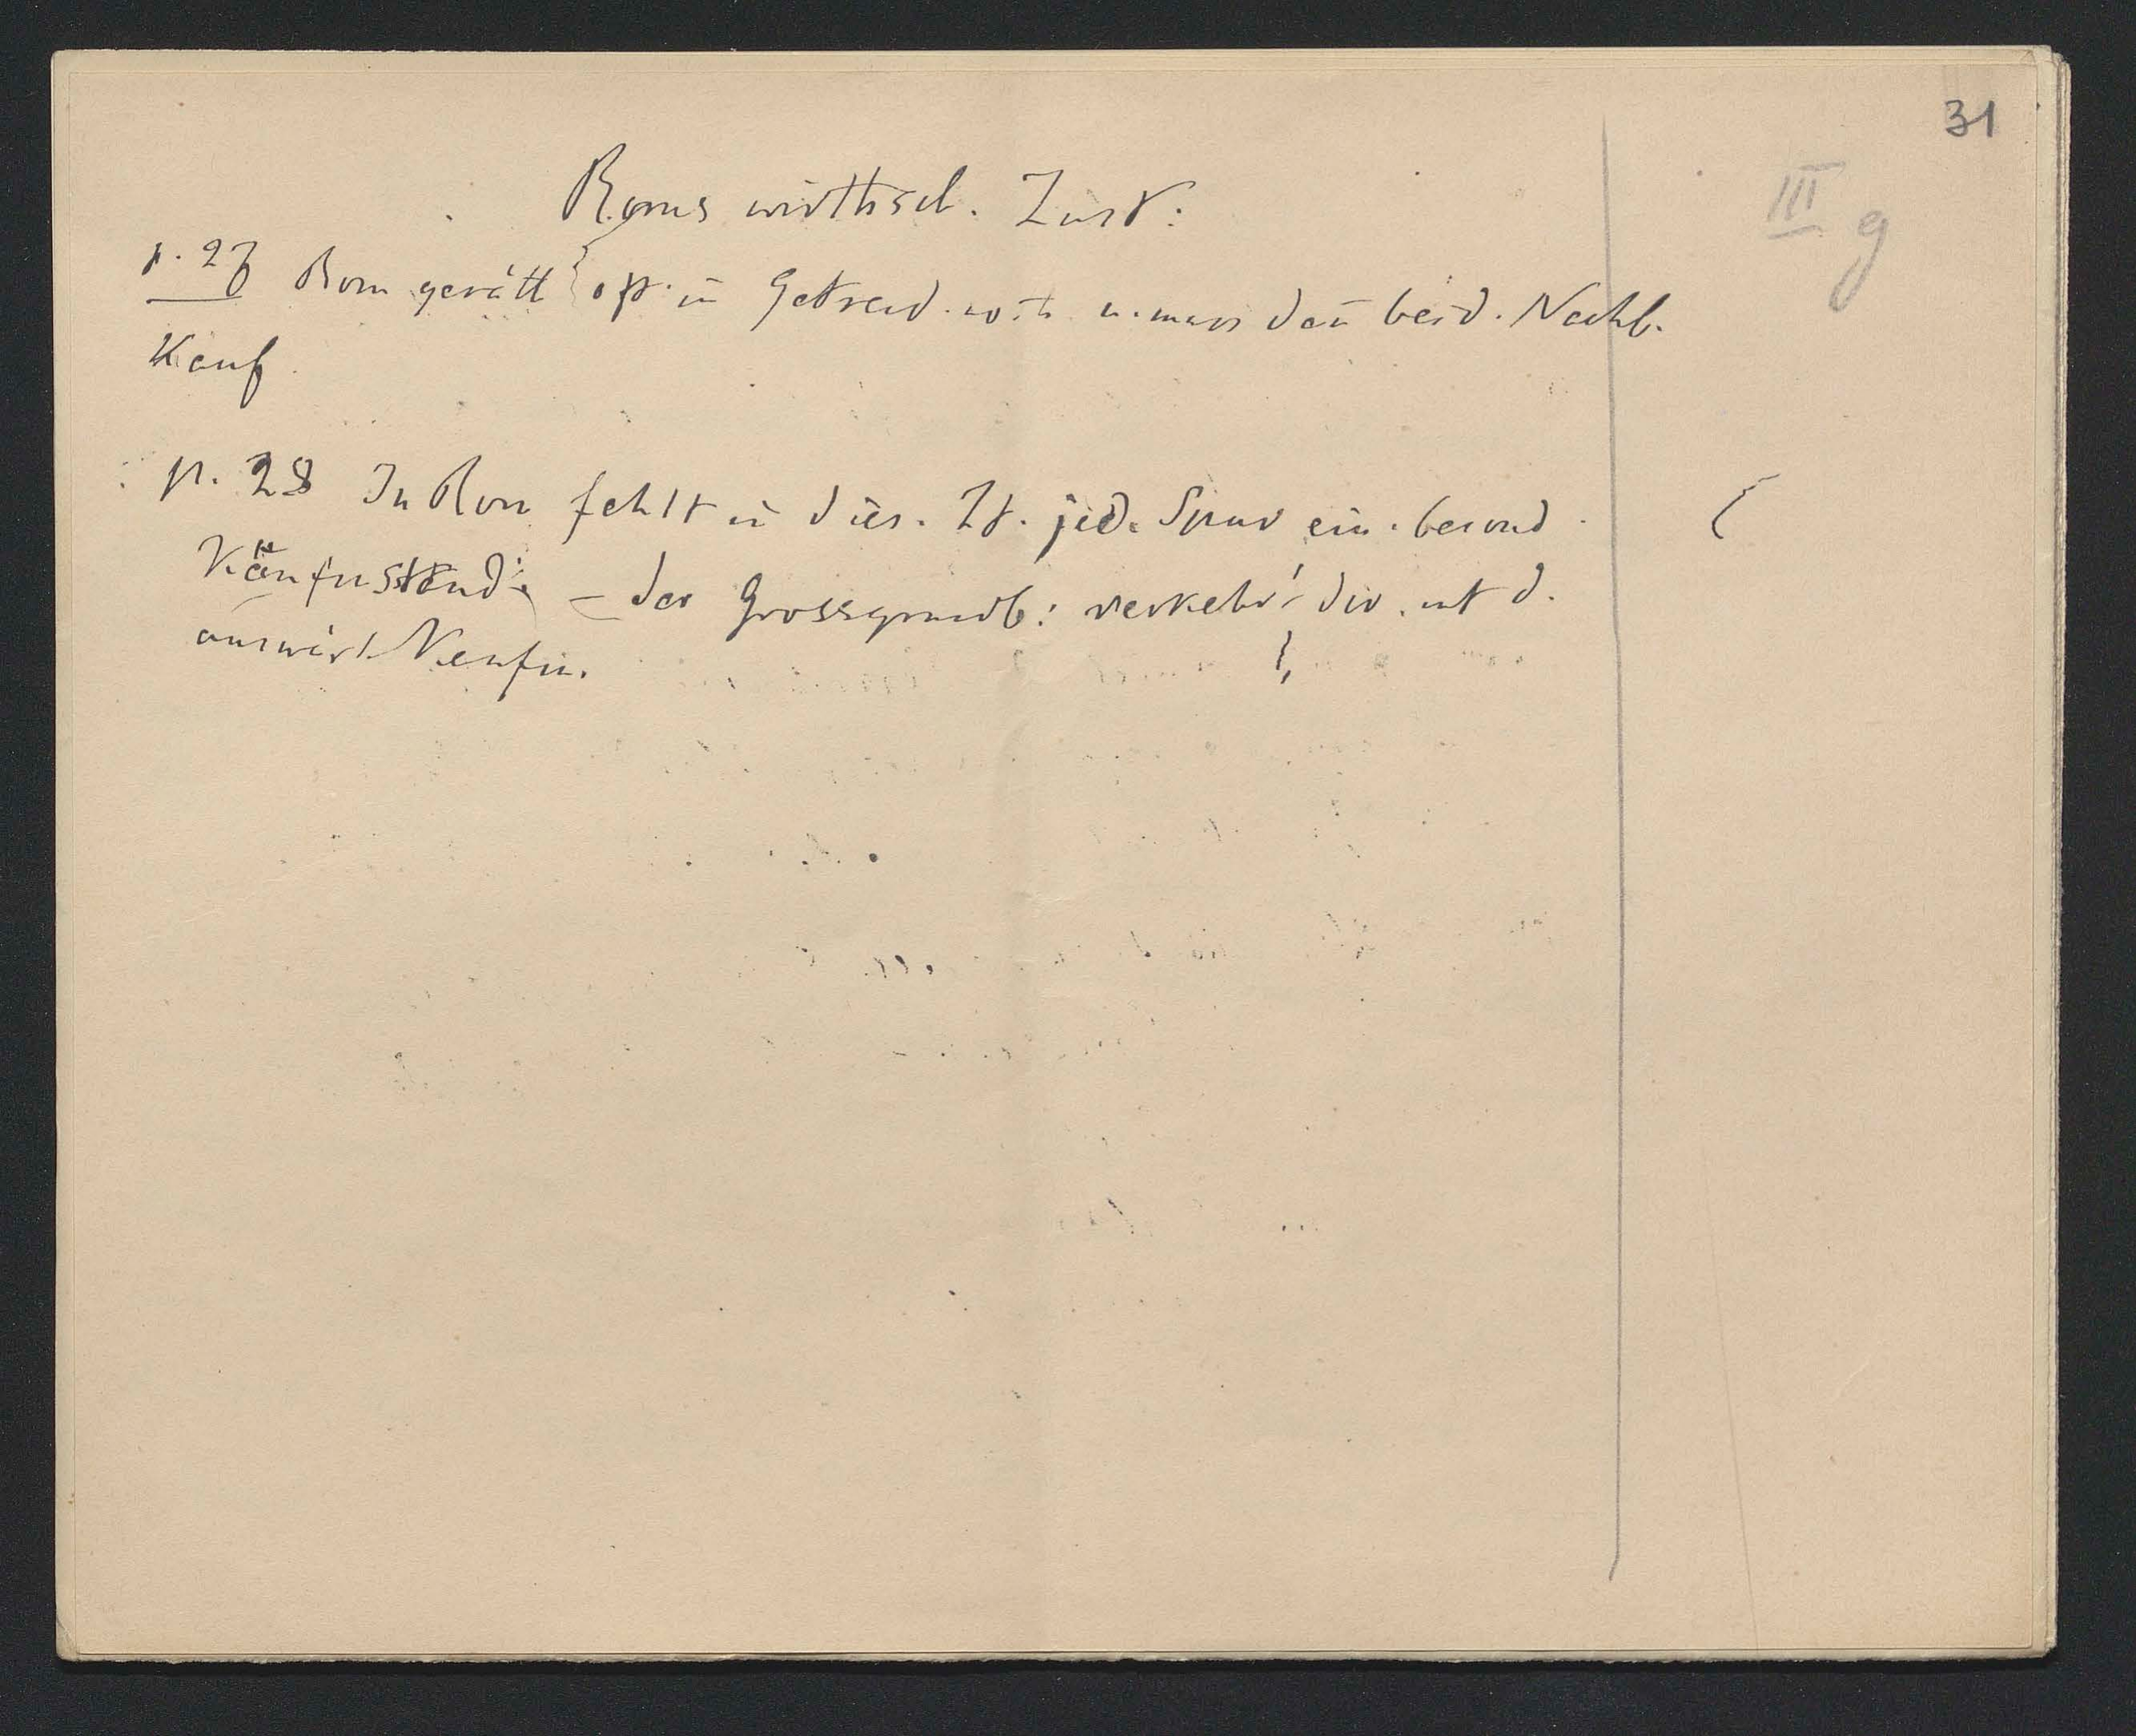 31
III g
Roms wirthsch. Zust:
p. 27 Rom gerätt oft in Getreid. noth u. muss dan bei d. Nachb.
Kauf
p. 28 In Rom fehlt in dies. Zt. jed. Spur ein. besond.
Kaufm stand. – der Grossgrundb: verkehrt dir. mit d.
auswärt